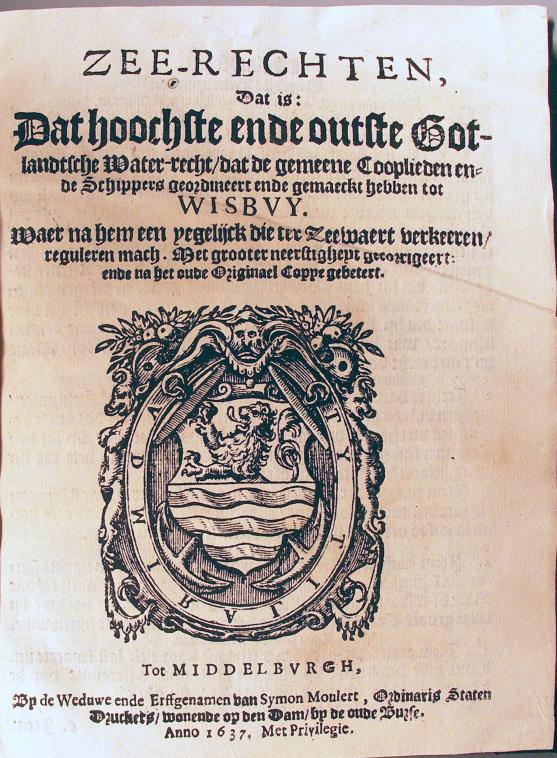 ZEE-RECHTEN,
Dat is:
Dat hoochste ende outste Got-
landtsche Water-recht/dat de gemeene Cooplieden en-
de Schippers geordineert ende gemaeckt hebben tot
WISBVY.
Waer na hem een yegelijck die ter Zeewaert verkeeren/
reguleren mach. Met grooter neerstigheyt gecorrigeert:
ende na het oude Originael Coppe gebetert.
Tot MIDDELBVRGH,
By de Weduwe ende Erffgenamen van Symon Moulert, Ordinaris Staten
Druckers/ wonende op den Dam/ by de oude Burse.
Anno 1637. Met Privilegie.